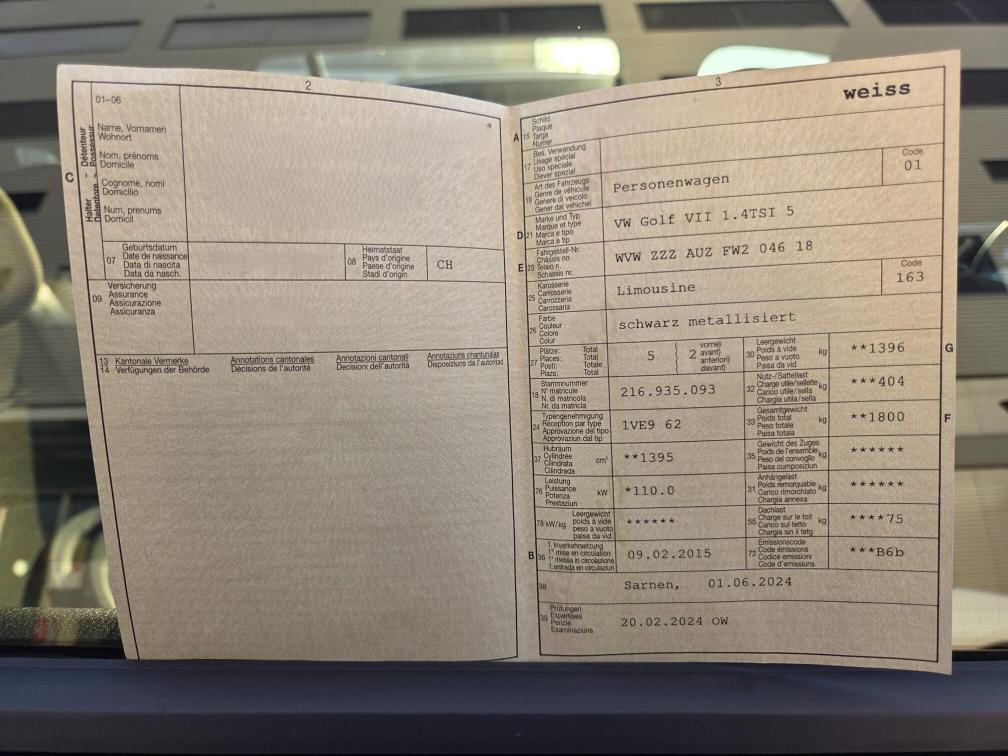 2
01-06
C
Halter - Détenteur
Detentore - Possessur
Name, Vornamen
Wohnort
Nom, prénoms
Domicile
Cognome, nomi
Domicilio
Num, prenums
Domicil
07
Geburtsdatum
Date de naissance
Data di nascita
Data da nasch.
08
Heimatstaat
Pays d'origine
Paese d'origine
Stadi d'origin
CH
09
Versicherung
Assurance
Assicurazione
Assicuranza
13
14
Kantonale Vermerke
Verfügungen der Behörde
Annotations cantonales
Décisions de l'autorité
Annotazioni cantonali
Decisioni dell'autorità
Annotaziuns chantunalas
Disposiziuns da l'autoritad
3
weiss
A
15
Schild
Plaque
Targa
Numer
17
Bes. Verwendung
Usage spécial
Uso speciale
Diever spezial
19
Art des Fahrzeugs
Genre de véhicule
Genere di veicolo
Gener dal vehichel
Personenwagen
Code
01
D
21
Marke und Typ
Marque et type
Marca e tipo
Marca e tip
VW Golf VII 1.4TSI 5
E
23
Fahrgestell-Nr.
Châssis no
Telaio n.
Schassis nr.
WVW ZZZ AUZ FW2 046 18
25
Karosserie
Carrosserie
Carrozzeria
Carossaria
Limousine
Code
163
26
Farbe
Couleur
Colore
Colur
schwarz metallisiert
27
Plätze: Total
Places: Total
Posti: Totale
Plazs: Total
5
2
vorne)
avant)
anteriori)
davant)
30
Leergewicht
Poids à vide
Peso a vuoto
Paisa da vid
kg
**1396
G
18
Stammnummer
N° matricule
N. di matricola
Nr. da matricla
216.935.093
32
Nutz-/Sattellast
Charge utile/sellette
Carico utile/sella
Chargia utila/sella
kg
***404
24
Typengenehmigung
Réception par type
Approvazione del tipo
Approvaziun dal tip
1VE9 62
33
Gesamtgewicht
Poids total
Peso totale
Paisa totala
kg
**1800
F
37
Hubraum
Cylindrée
Cilindrata
Cilindrada
cm³
**1395
35
Gewicht des Zuges
Poids de l'ensemble
Peso del convoglio
Paisa cumposiziun
kg
******
76
Leistung
Puissance
Potenza
Prestaziun
kW
*110.0
31
Anhängelast
Poids remorquable
Carico rimorchiato
Chargia annexa
kg
******
78 kW/kg
Leergewicht
poids à vide
peso a vuoto
paisa da vid
******
55
Dachlast
Charge sur le toit
Carico sul tetto
Chargia sin il tetg
kg
****75
B
36
1. Inverkehrsetzung
1re mise en circulation
1a messa in circolazione
1. entrada en circulaziun
09.02.2015
72
Emissionscode
Code émissions
Codice emissioni
Code d'emissiuns
***B6b
38
Sarnen, 01.06.2024
39
Prüfungen
Expertises
Perizie
Examinaziuns
20.02.2024 OW